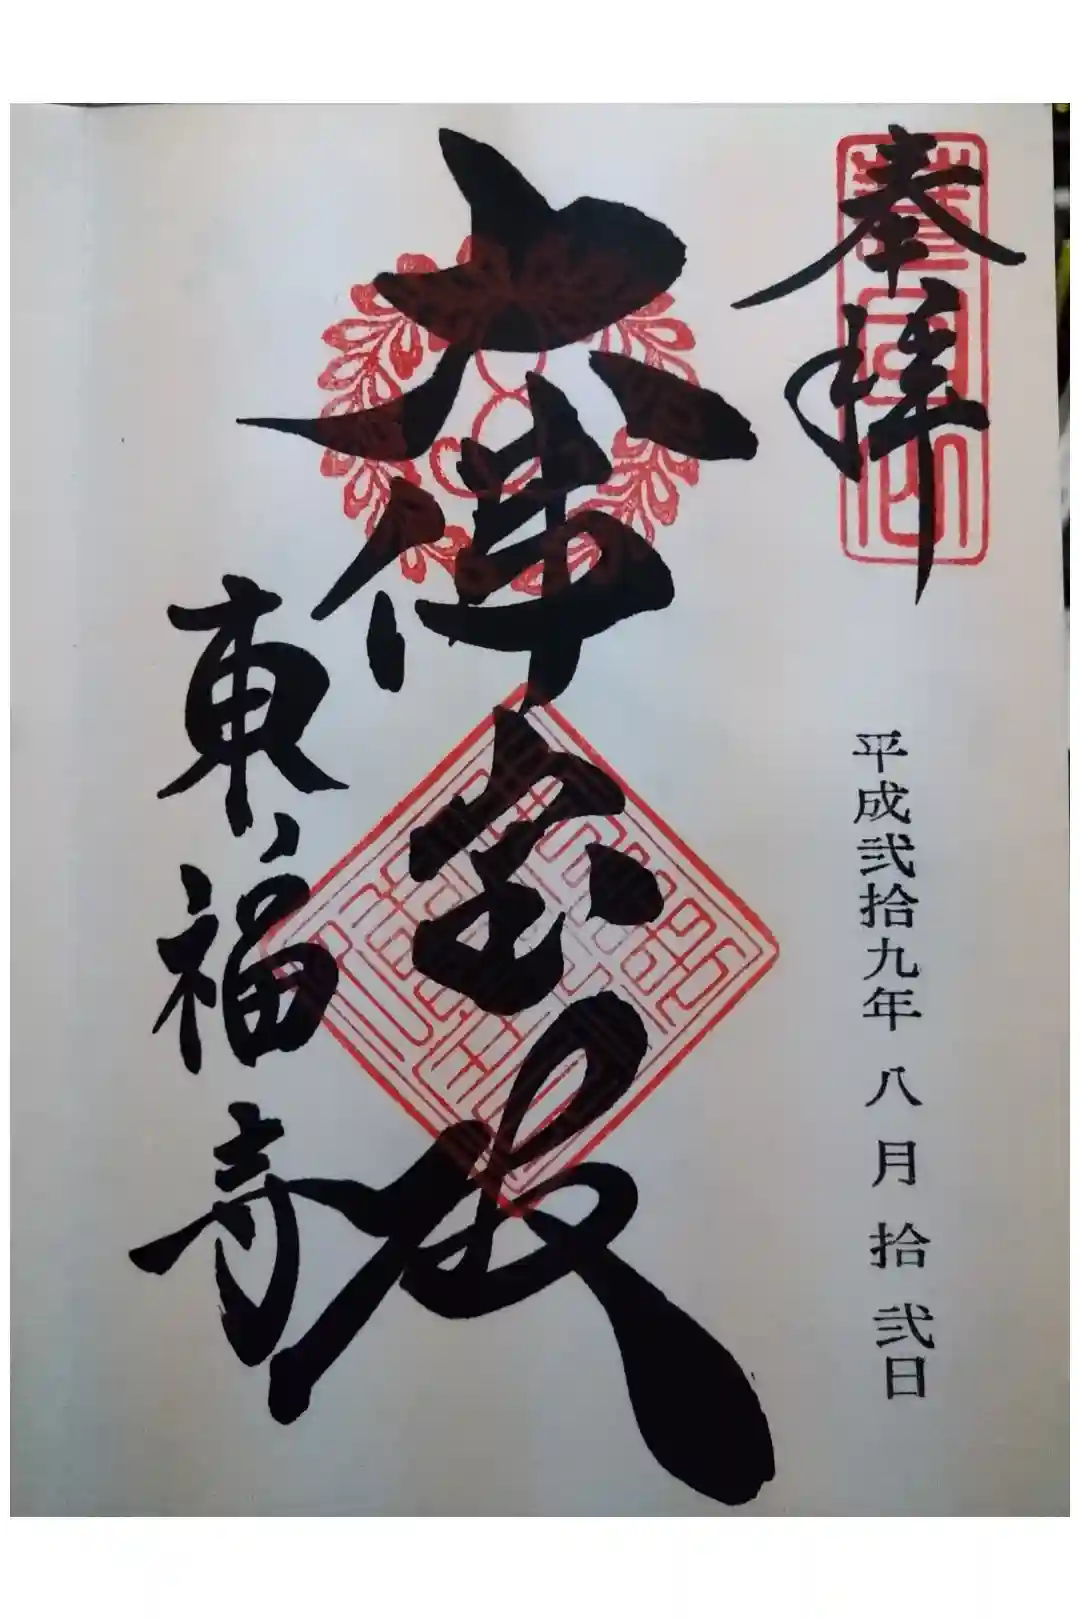 奉拝
平成弐拾九年八月拾弐日
大佛宝殿
東福寺